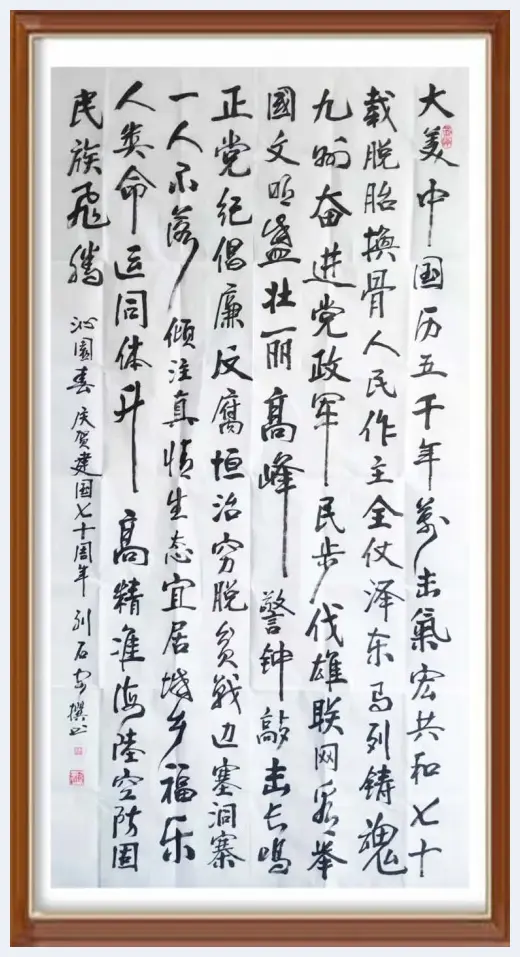 大美中国历五千年葛击氣宏共和七十
载脱胎换骨人民作主全仗泽东马列铸魂
九州奋进党政军民步伐雄联网看举
國文明盛壮丽高峰警钟敲击长鸣
正党纪倡廉反腐恒治穷脱贫戰边塞洞寨
一人不落倾注真情生态宜居城乡福乐
人类命运同体升高精准海陸空防固
民族飞腾
沁園春庆贺建国七十周年刘石安撰书